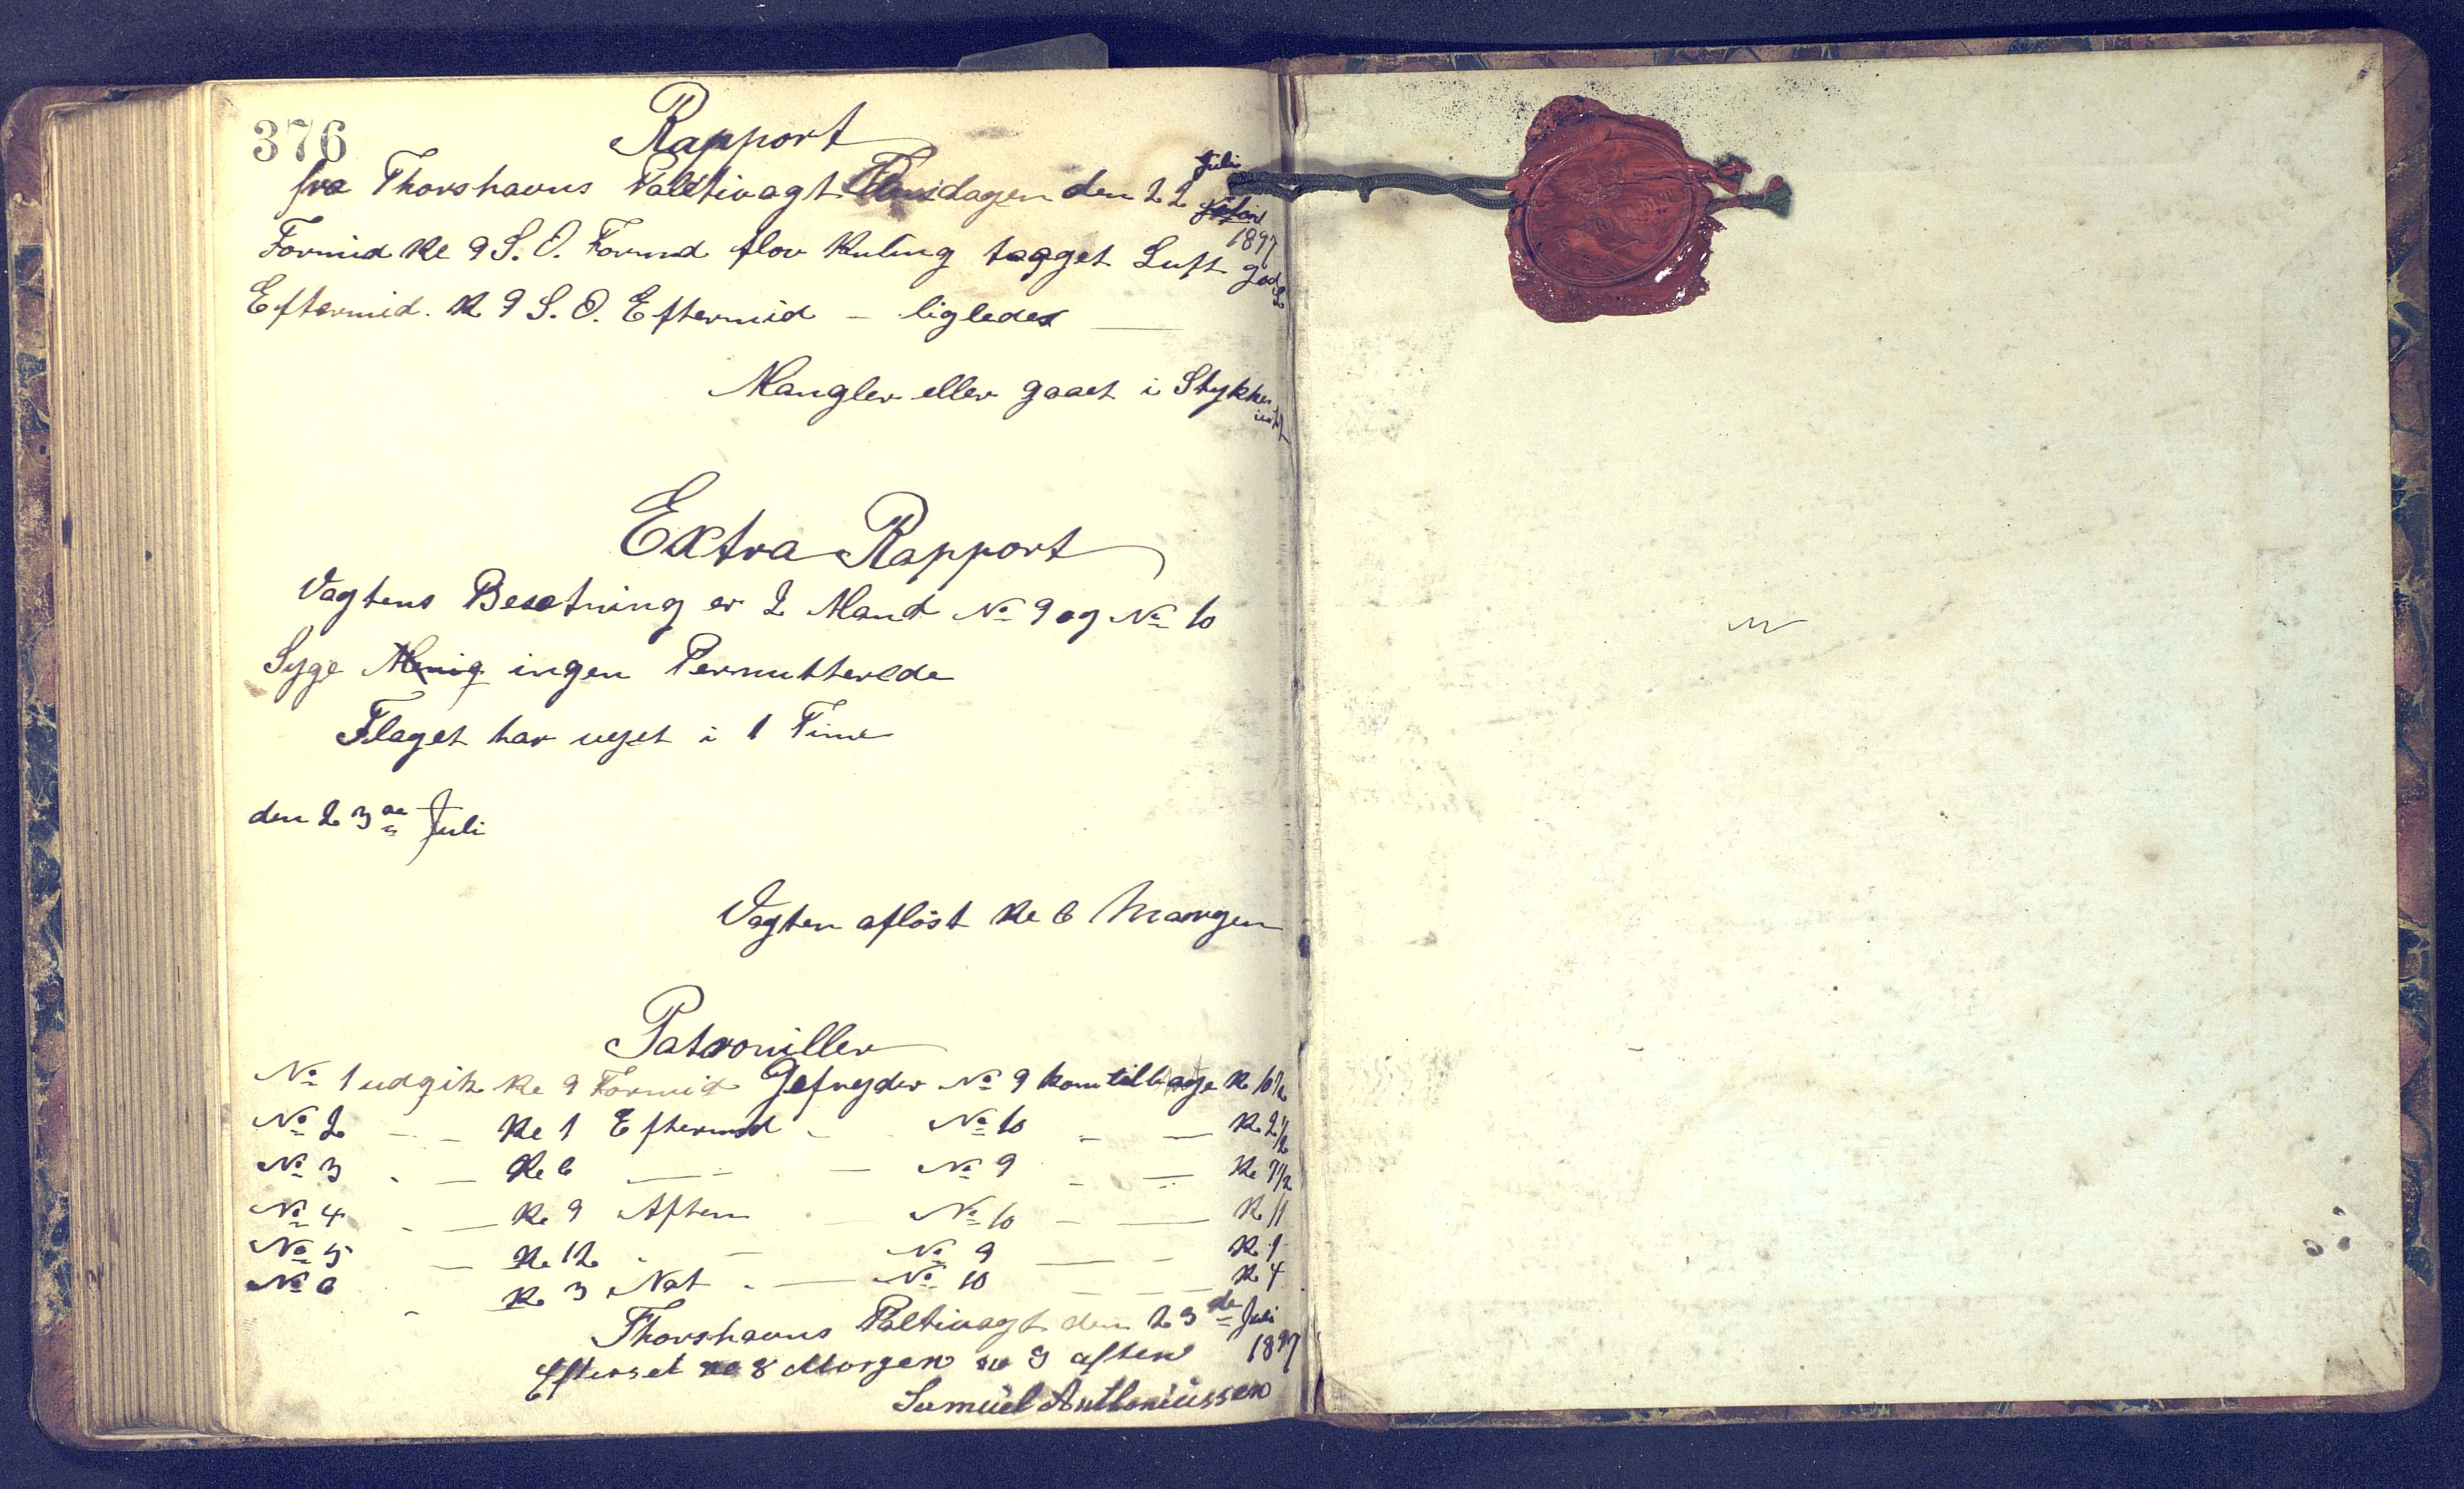 376
Rapport
fra Thorshavns Politivagt Torsdagen den 22 Juli
1897
Formid Kl 9 S. O. Formd flov Kuling tagget Luft god
Eftermid. Kl 9 S. O. Eftermid – ligledes —
Mangler eller gaaet i Stykker
intet
Extra Rapport
Vagtens Besætning er 2 Mand No 9 og No 10
Syge ingen Permutterede
Flaget har vejet i 1 Time
den 23de Juli
Vagten afløst Kl 6 Morgen
Patrouiller
No 1 udgik Kl 9 Formid Gefrejder No 9 kom tilbage Kl 10½
No 2 – – Kl 1 Eftermd – No 10 – — Kl 2½
No 3 - — Kl 6 — - — No 9 – — Kl 7½
No 4 - — Kl 9 Aften - — No 10 – — Kl 11
No 5 — Kl 12 - – No 9 — – Kl 1
No 6 - Kl 3 Nat - — No 10 — — Kl 4
Thorshavns Poltivagt den 23de Juli
1897
Efterset Kl 8 Morgen Kl 9 aften
Samuel Anthoniussen